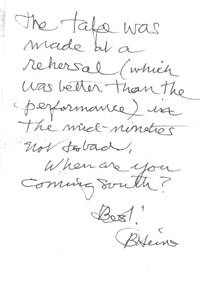 The tape was
made at a
rehersal (which
was better than the
performance) in
The mid-nineties
not bad,
When are you
coming south?
Best!